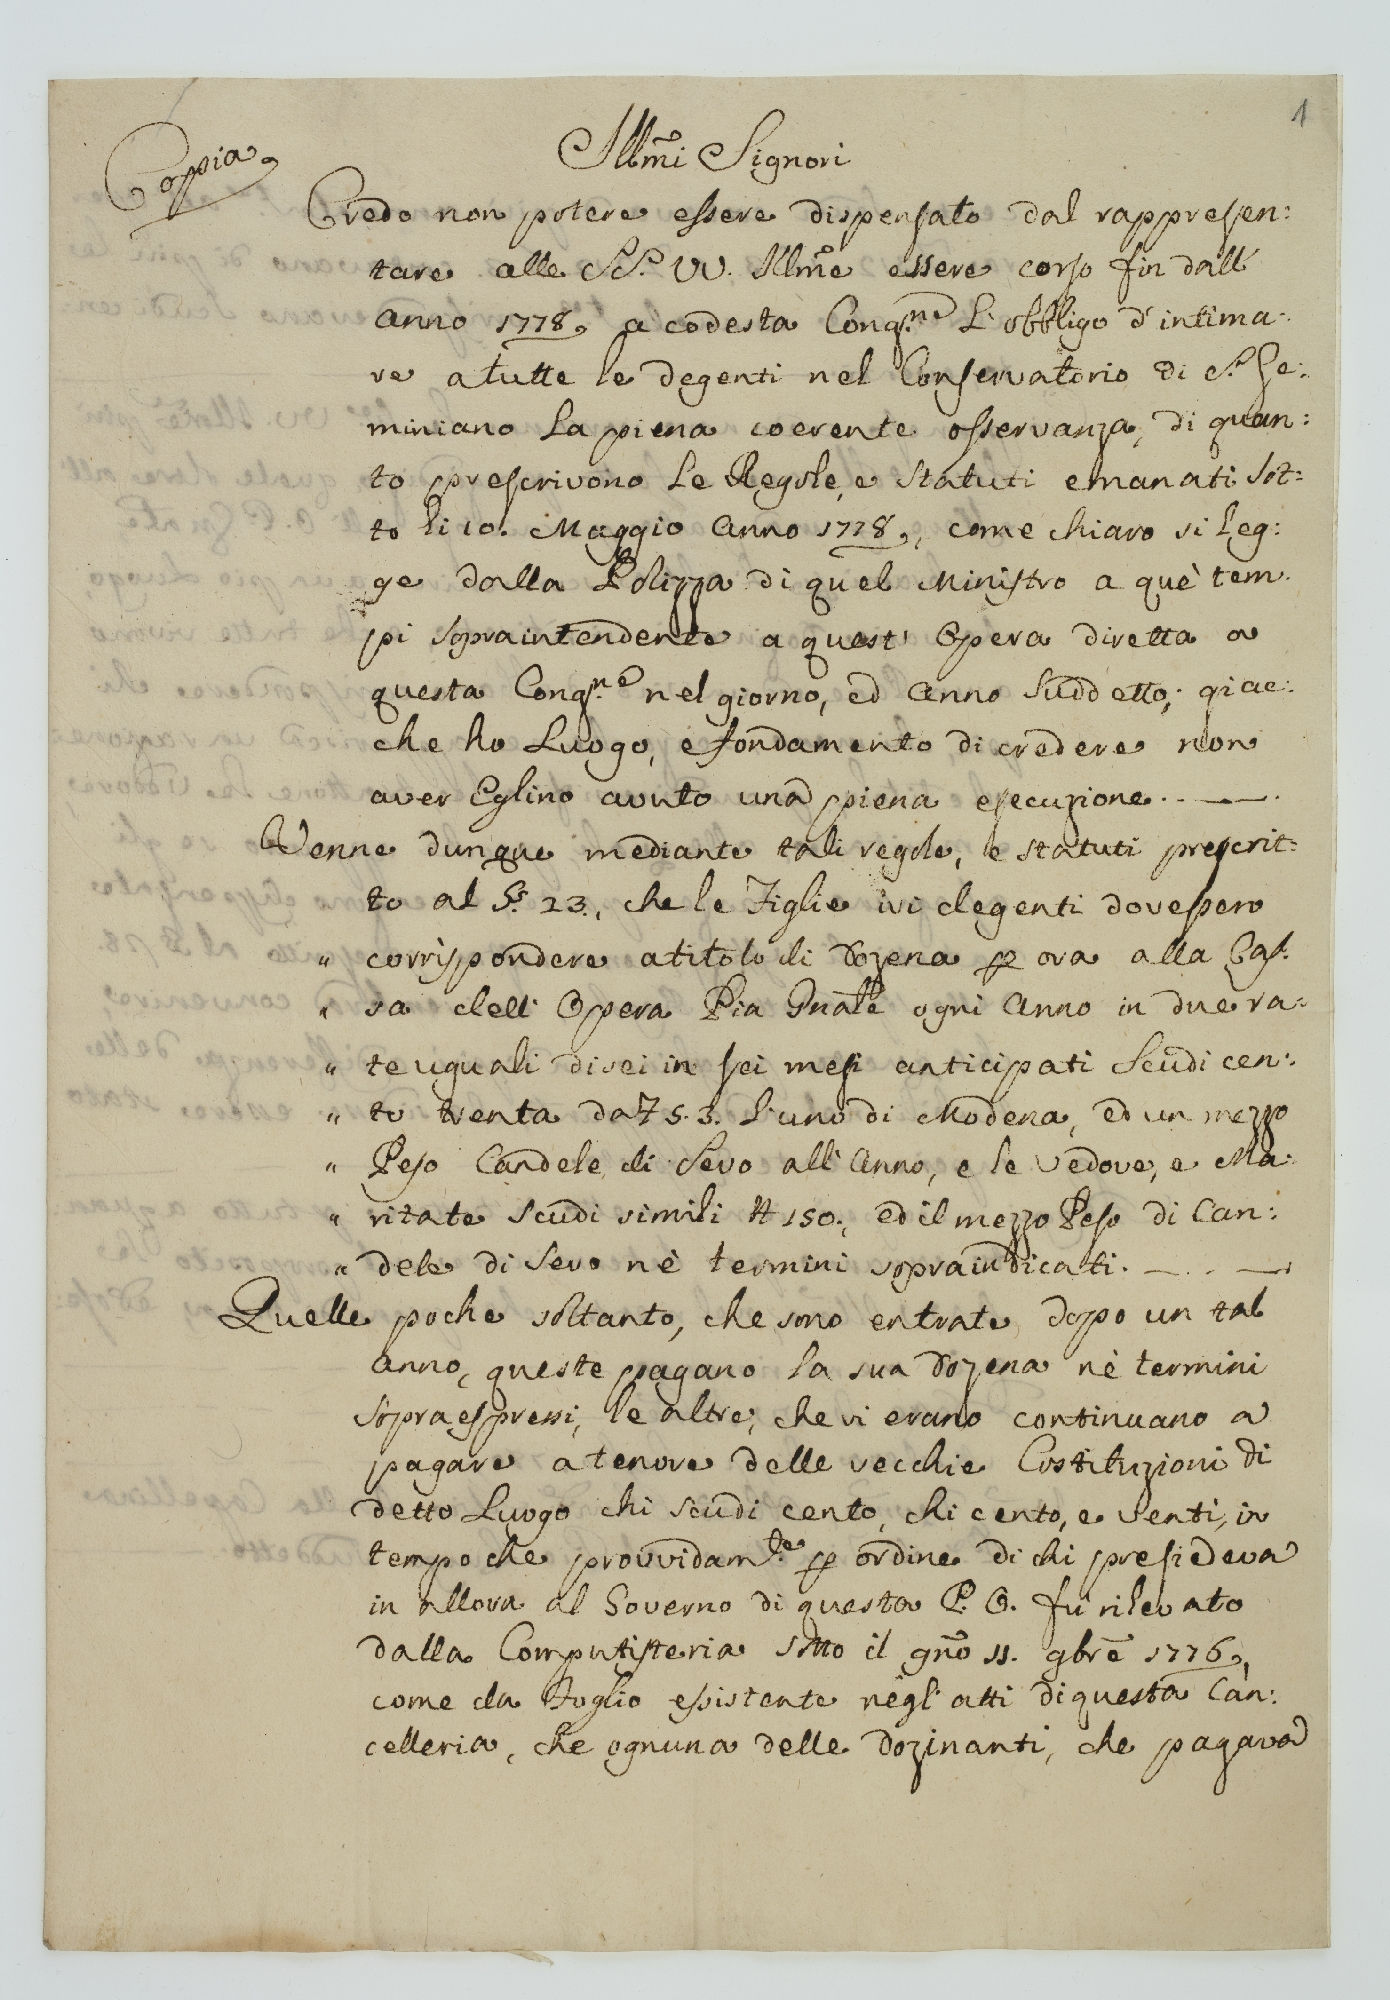 1
Coppia
Illm̃i Signori
Credo non potere essere dispensato dal rappresen:
tare alle SS.e VV. Illm̃e essere corso fin dall'
Anno 1778, a codesta Cong.ne L'obbligo d'intima:
re a tutte le degenti nel Conservatorio di S. Ge:
miniano la piena coerente osservanza, di quan:
to prescrivono Le Regole, e Statuti emanati sot:
to li 10. Maggio Anno 1778, come chiaro si leg:
ge dalla Polizza di quel Ministro a què tem:
pi sopraintendente a quest' Opera diretta a
questa Cong.ne nel giorno, ed Anno suddetto; giac:
che ho Luogo, e fondamento di credere non
aver Eglino avuto una piena esecuzione. . —
Venne dunque mediante tali regole, e statuti prescrit:
to al §. 23., che le Figlie ivi degenti dovessero
" corrispondere a titolo di Dozena p ora alla Cas:
" sa dell' Opera Pia Gnãle ogni Anno in due ra:
" te uguali di sei in sei mesi anticipati Scudi cen:
" to trenta da £ 5. 3. l'uno di Modena, ed un mezzo
" Peso Candele di Sevo all' Anno, e le vedove, e Ma:
" ritate scudi simili N 150., ed il mezzo Peso di Can:
" dele di Sevo nè termini sopraindicati. — . —
Quelle poche soltanto, che sono entrate dopo un tal
Anno, queste pagano la sua Dozena nè termini
sopraespressi, le altre, che vi erano continuano a
pagare a tenore delle vecchie Costituzioni di
detto Luogo chi scudi cento, chi cento, e venti, in
tempo che provvidam.te p ordine di chi presiedeva
in allora al Governo di questa P. O. fu rilevato
dalla Computisteria sotto il gnõ 11. 9brẽ 1776,
come da Foglio essistente negl' atti di questa Can:
celleria, che ognuna delle Dozinanti, che pagava